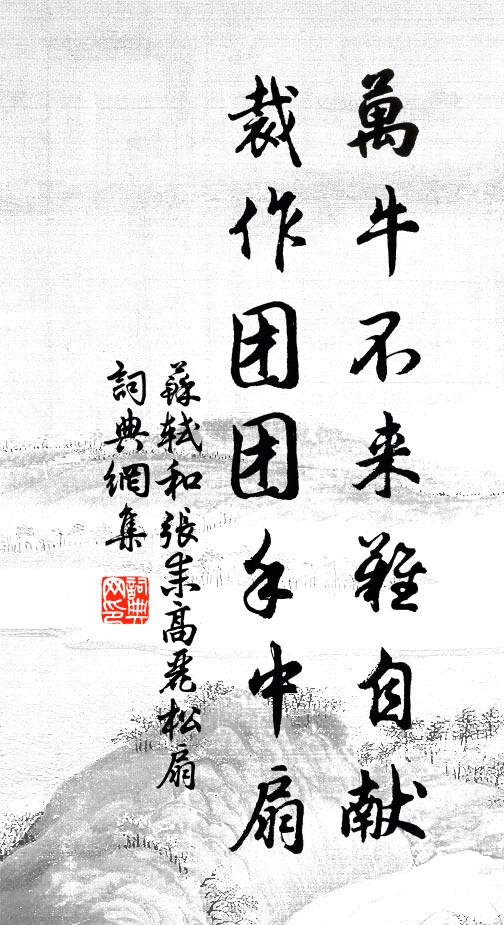 萬牛不来難自献
裁作团团手中扇
蘇軾和張耒高丽松扇
詞典網集
詞典网印